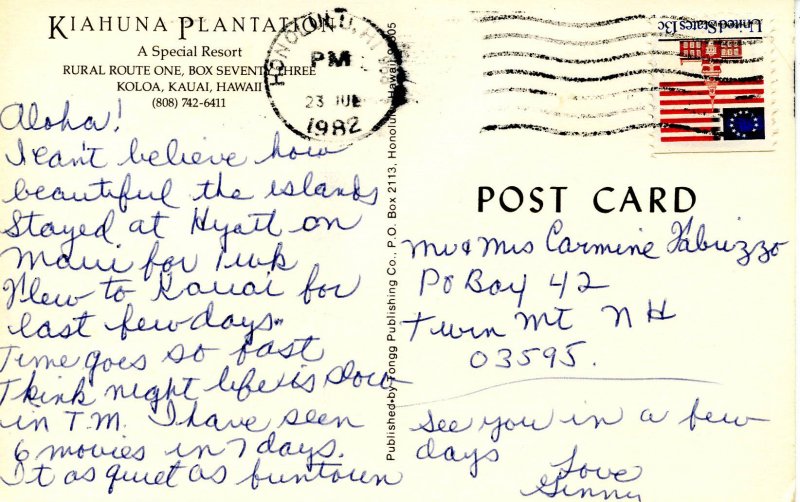 KIAHUNA PLANTATION
A Special Resort
RURAL ROUTE ONE, BOX SEVENTY-THREE
KOLOA, KAUAI, HAWAII
(808) 742-6411
Aloha!
I can't believe how
beautiful the islands
Stayed at Hyatt on
Maui for 1 wk
Flew to Kauai for
last few days.
Time goes so fast
Think night life is slow
in T.M. I have seen
6 movies in 7 days.
It as quiet as funtown
HONOLULU, HI
PM
23 JUL
1982
Published by Tongg Publishing Co., P.O. Box 2113, Honolulu, Hawaii 96805
United States 13c
POST CARD
Mr & Mrs Carmine Fabrizzo
PO Box 42
Twin Mt NH
03595.
See you in a few
days
Love
Ginny